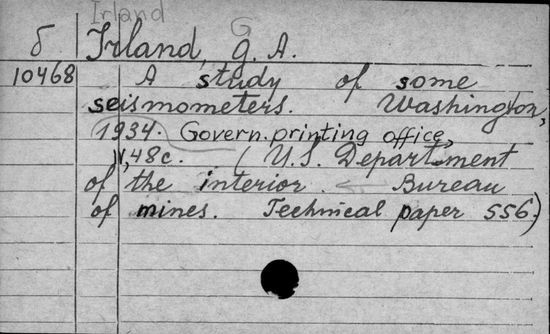 Irland
б Irland, G. A.
10468 A study of some
seismometers. Washington,
1934. Govern. printing office,
IV, 48c. (U.S. Department
of the interior. Bureau
of mines. Technical paper 556.)